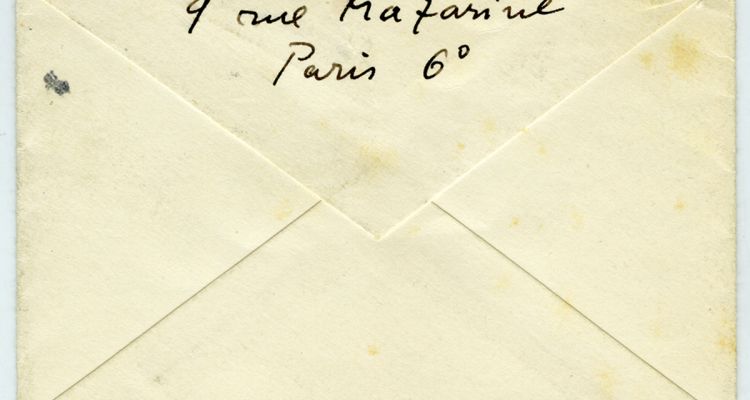 9 rue Mazarine
Paris 6º